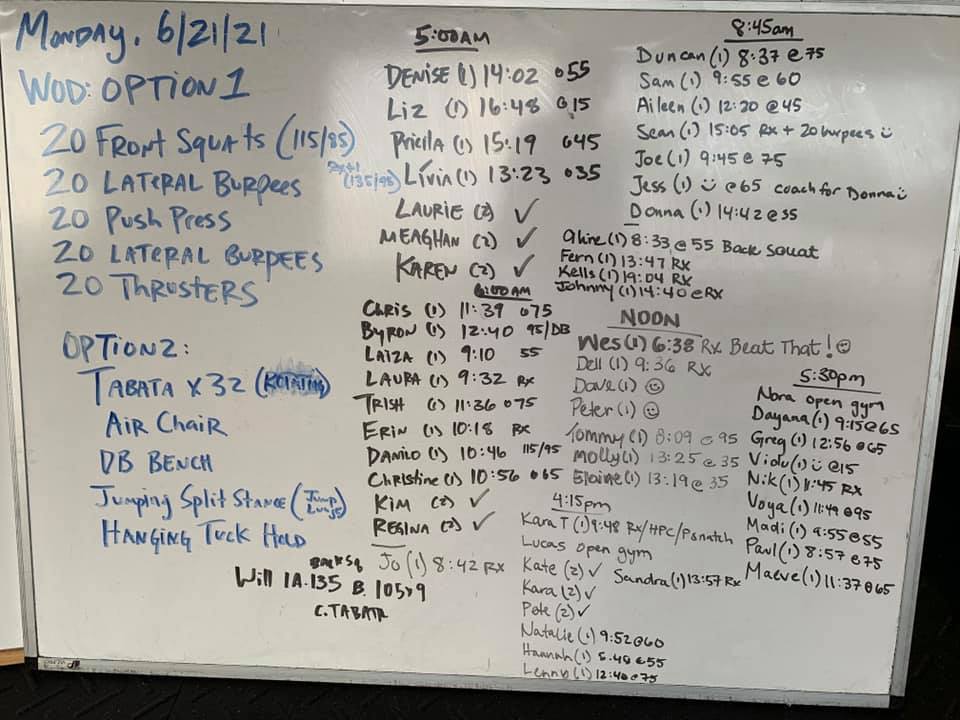 Monday, 6/21/21
WOD: OPTION 1
20 Front Squats (115/85)
20 LATERAL Burpees
20 Push Press
20 LATERAL BURPEES
20 THRUSTERS
OPTION 2:
TABATA x 32 (ROTATING)
AIR CHAIR
DB BENCH
Jumping Split Stance (Jump Lunges)
HANGING TUCK HOLD
5:00AM
DENISE (1) 14:02 @55
Liz (1) 16:48 @15
Pricila (1) 15:19 @45
(135/95) Livin (1) 13:23 @35
LAURIE (2) ✓
MEAGHAN (2) ✓
KAREN (2) ✓
6:00AM
CHRIS (1) 11:39 @75
BYRON (1) 12:40 95/DB
LAIZA (1) 9:10 55
LAURA (1) 9:32 RX
TRISH (1) 11:36 @75
ERIN (1) 10:18 RX
DANILO (1) 10:46 115/95
Christine (1) 10:56 @65
KIM (2) ✓
REGINA (2) ✓
Jo (1) 8:42 RX
BACK SQ
Will 1A.135 B. 105x9
C. TABATA
8:45am
Duncan (1) 8:37 @ 75
Sam (1) 9:55 @ 60
Aileen (1) 12:20 @45
Sean (1) 15:05 Rx + 20 burpees ☺
Joe (1) 9:45 @ 75
Jess (1) ☺ @65 coach for Donna ☺
Donna (1) 14:42 @ 35
Aline (1) 8:33 @ 55 Back Squat
Fern (1) 13:47 Rx
Kells (1) 19:04 Rx
Johnny (1) 14:40 @ Rx
NOON
Wes (1) 6:38 Rx Beat That! ☺
Dell (1) 9:36 RX
Dave (1) ☺
Peter (1) ☺
Tommy (1) 8:09 @ 95
Molly (1) 13:25 @ 35
Elaine (1) 13:19 @ 35
4:15pm
Kara T (1) 9:48 Rx/HPC/Psnatch
Lucas open gym
Kate (2) ✓
Sandra (1) 13:57 Rx
Kara (2) ✓
Pete (2) ✓
Natalie (1) 9:52 @60
Hannah (1) 8:48 @55
(1) 12:40 @75
5:30pm
Nora open gym
Dayana (1) 9:15 @ 65
Greg (1) 12:56 @65
(1) ☺ @15
Nik (1) 11:45 RX
Voya (1) 11:49 @95
Madi (1) 9:55 @ 55
Paul (1) 8:57 @75
Maeve (1) 11:37 @65